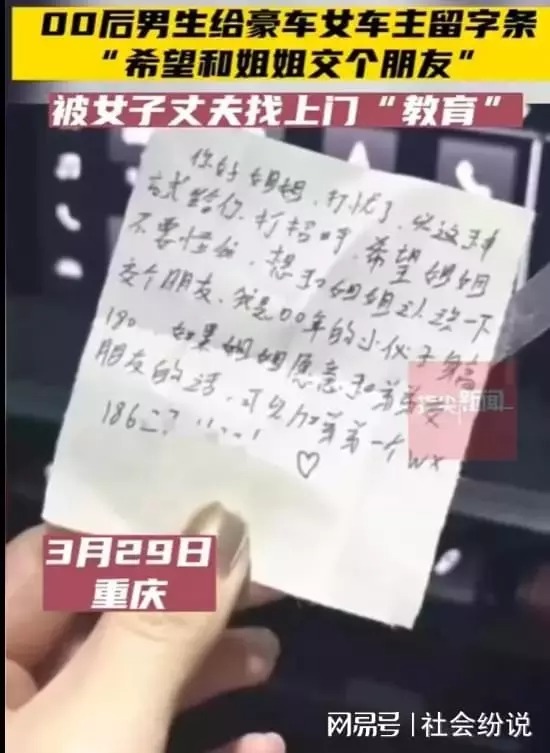 00后男生给豪车女车主留字条
“希望和姐姐交个朋友”
被女子丈夫找上门“教育”
你好 姐姐，打扰了，以这种
方式给你打招呼，希望姐姐
不要怪怡，想和姐姐认识一下
交个朋友，我是00年的小伙子身高
190，如果姐姐愿意和弟弟交
朋友的话，可以加弟弟一个wx
186
♡
新闻
3月29日
重庆
网易号 | 社会纷说